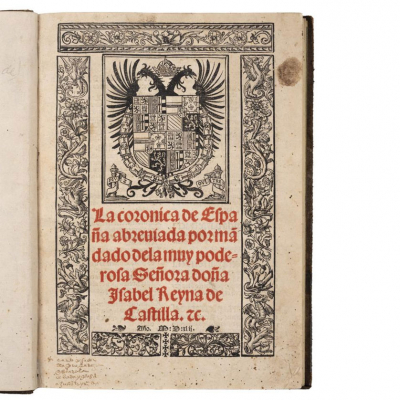 La coronica de Espa
ña abreuiada por mā
dado dela muy pode-
rosa Señora doña
Jsabel Reyna de
Castilla. ⁊c.
Año.